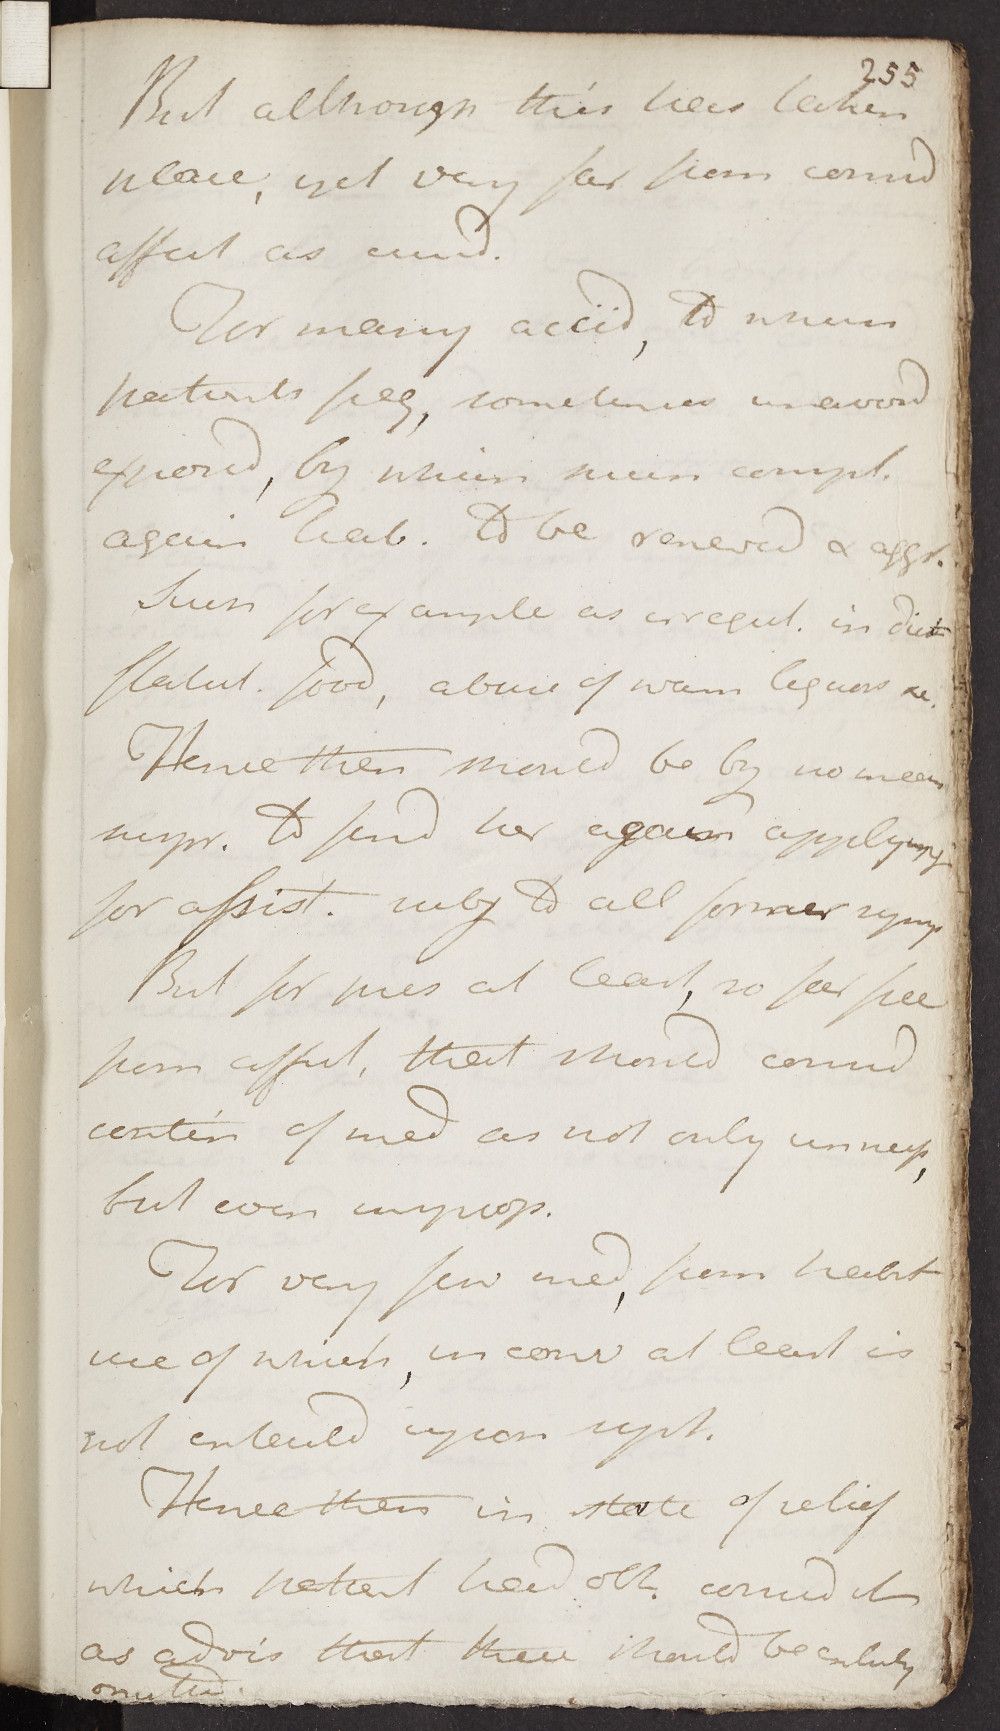 255
But although this has taken
place, yet very far from consid
affect as cured.
For many accid, to which
patients freq, sometimes unavoid
exposed, by which such compl.
again liab. to be renewed & aggr.
Such for example as irregul. in diet
flatul. food, abuse of warm liquors &c.
Hence then should be by no mean
surpr. to find her again applying
for assist. subj to all former symp
But for pres at least, so far free
from affect, that should consid
contin of med as not only unness,
but even improp.
For very few med, from habit
use of which, in conv at least is
not entaild upon syst.
Hence then in state of relief
which patient had obt. consid it
as advis that these should be entirely
omitted.